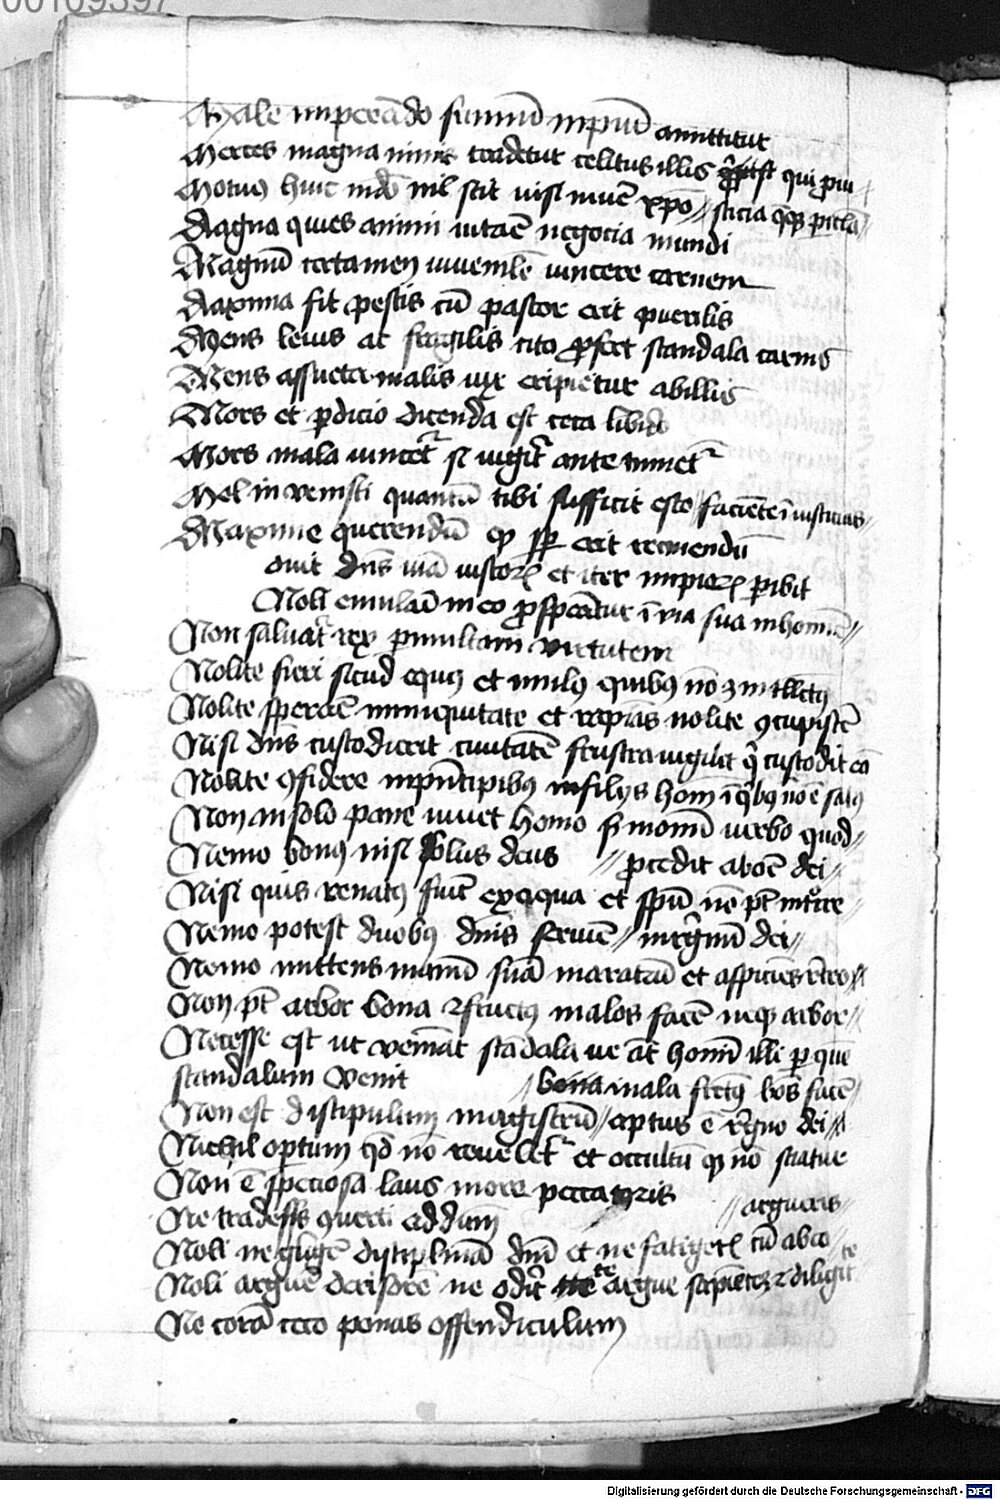 00109397
Male imperando summum imperium amittitur
Merces magna nimis tradetur celitus illis qui
Motus huic mundo nil scit nisi vivere christo // sticia
Magna quies animi vitare negocia mundi
Magnum certamen iuvenilem vincere carnem
Maxima fit pestis cum pastor erit puerilis
Mens levis ac fragilis cito profert scandala carnis
Mens assueta malis vix eripietur ab illis
Mors et perdicio dicenda est ceca libido
Mors mala vincetur si iugiter ante timetur
Mel invenisti quantum tibi sufficit esto // faciente iniusticias
Maxime querendum quod semper erit tenendum
ovit dominus viam iustorum et iter impiorum peribit
Noli emulari in eo qui prosperatur in via sua in homine //
Non salvatur rex per multam virtutem
Nolite fieri sicud equus et mulus quibus non est intellectus
Nolite sperare in iniquitate et rapinas nolite concupiscere
Nisi dominus custodierit civitatem frustra vigilat qui custodit eam
Nolite confidere in principibus in filiis hominum in quibus non est salus
Non in solo pane vivet homo sed in omni verbo quod //
Nemo bonus nisi solus deus // procedit ab ore dei //
Nisi quis renatus fuerit ex aqua et spiritu non potest introire //
Nemo potest duobus dominis servire // in regnum dei //
Nemo mittens manum suam in aratrum et aspiciens retro //
Non potest arbor bona fructus malos facere neque arbor //
Necesse est ut veniant scandala ve autem homini illi per quem
scandalum venit // mala fructus bonos facere //
Non est discipulum magistrum // aptus est regno dei //
Nichil opertum quod non reveletur et occultum quod non sciatur
Non est speciosa laus in ore peccatoris // argueris //
Ne tradesis converti ad dominum
Noli negligere disciplinam domini et ne fatigeris cum ab eo
Noli arguere derisorem ne oderit te argue sapientem et diliget te
Ne coram ceco ponas offendiculum
Digitalisierung gefördert durch die Deutsche Forschungsgemeinschaft - DFG